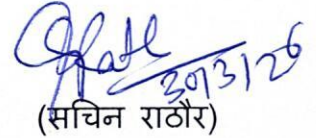 30/3/26
(सचिन राठौर)